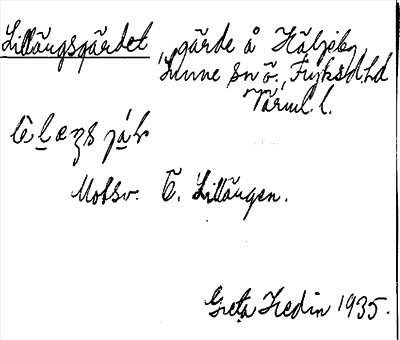 Lillängsgärdet, gärde å Häljeby,
Lunne sn Ö., Fryksd. hd
Värml. l.
Motsv. Ö. Lillängen.
Greta Hedin 1935.